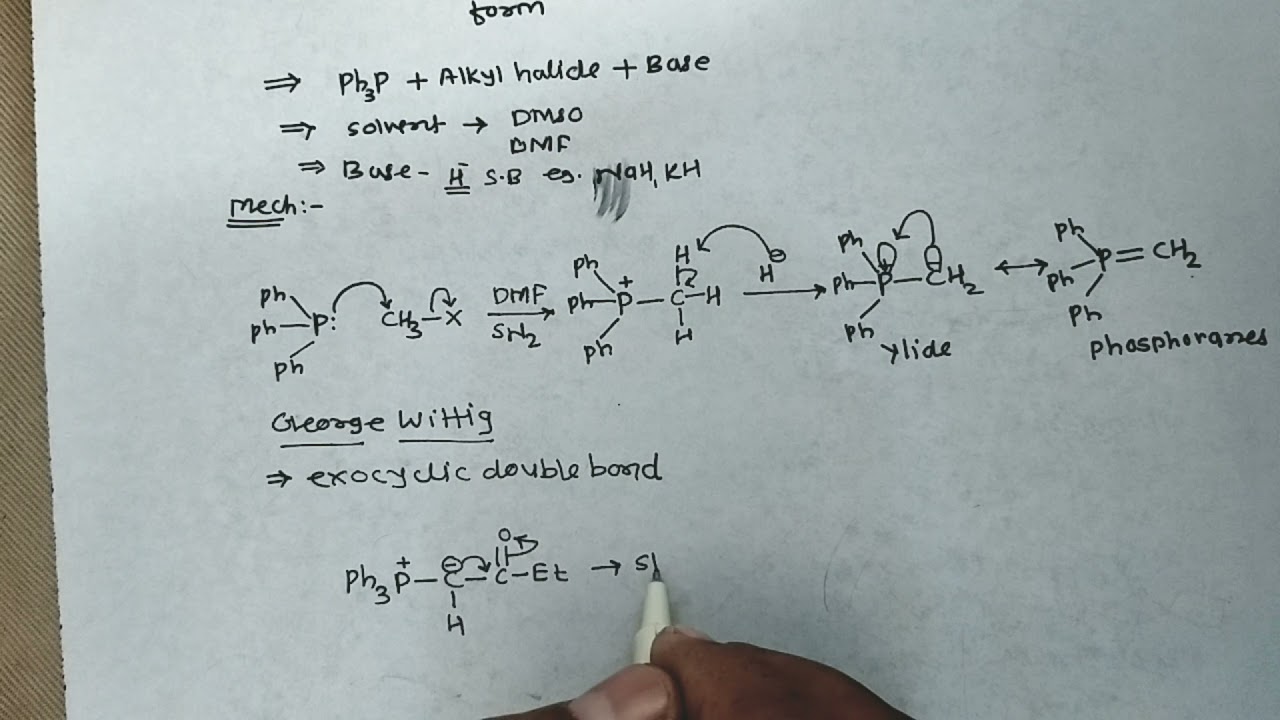 form
⇒ Ph₃P + Alkyl halide + Base
⇒ solvent → DMSO
DMF
⇒ Base - H⁻ S.B eg. NaH, KH
Mech:-
Ph Ph Ph P: CH₃-X DMF SN₂ Ph Ph Ph P⁺ - C - H H H H⊖ → Ph Ph Ph P⁺ - C⊖H₂ ↔ Ph Ph Ph P = CH₂
ylide phosphoranes
George Wittig
⇒ exocyclic double bond
Ph₃P⁺ - C⊖ - C - Et → S
O
H